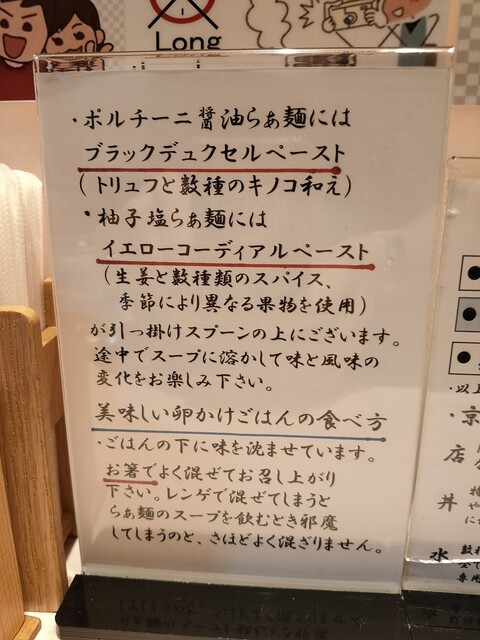 Long
・ポルチーニ醤油らぁ麺には
ブラックデュクセルペースト
(トリュフと数種のキノコ和え)
・柚子塩らぁ麺には
イエローコーディアルペースト
(生姜と数種類のスパイス、
季節により異なる果物を使用)
が引っ掛けスプーンの上にございます。
途中でスープに溶かして味と風味の
変化をお楽しみ下さい。
美味しい卵かけごはんの食べ方
・ごはんの下に味を沈ませています。
お箸でよく混ぜてお召し上がり
下さい。レンゲで混ぜてしまうと
らぁ麺のスープを飲むとき邪魔
してしまうのと、さほどよく混ざりません。
・以上
・京
店
丼
水